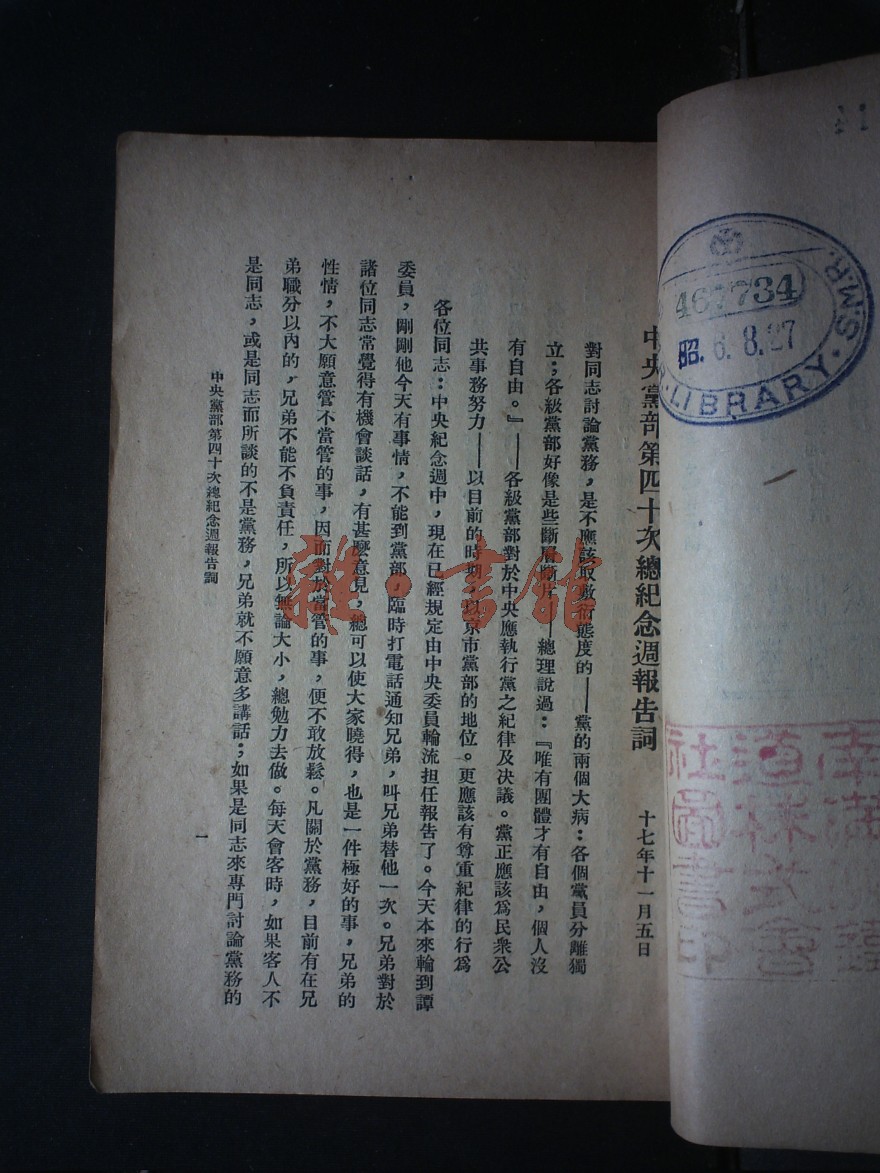 中央黨部第四十次總紀念週報告詞 十七年十一月五日
對同志討論黨務，是不應該取敷衍態度的——黨的兩個大病：各個黨員分離獨
立；各級黨部好像是些斷層斷片——總理說過：『唯有團體才有自由，個人沒
有自由。』——各級黨部對於中央應執行黨之紀律及決議。黨正應該爲民衆公
共事務努力——以目前的時期，以京市黨部的地位。更應該有尊重紀律的行爲
各位同志：中央紀念週中，現在已經規定由中央委員輪流担任報告了。今天本來輪到譚
委員，剛剛他今天有事情，不能到黨部，臨時打電話通知兄弟，叫兄弟替他一次。兄弟對於
諸位同志常覺得有機會談話，有甚麽意見，總可以使大家曉得，也是一件極好的事，兄弟的
性情，不大願意管不當管的事，因而對於當管的事，便不敢放鬆。凡關於黨務，目前有在兄
弟職分以內的，兄弟不能不負責任，所以無論大小，總勉力去做。每天會客時，如果客人不
是同志，或是同志而所談的不是黨務，兄弟就不願意多講話；如果是同志來專門討論黨務的
中央黨部第四十次總紀念週報告詞
一
467734
昭 6.8.27
S.M.R. LIBRARY
雜·書館